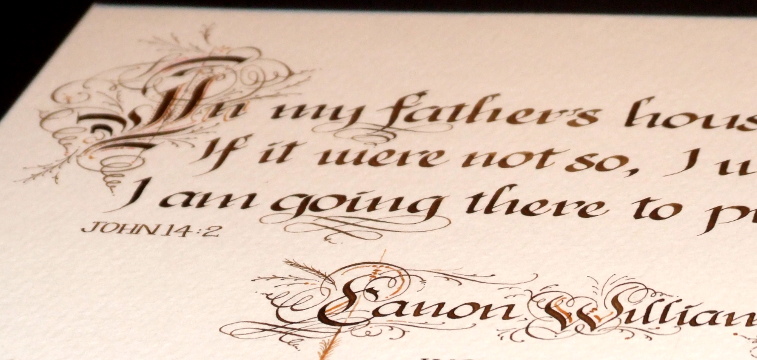 In my father's hous
If it were not so, I w
I am going there to p
JOHN 14:2
Canon William